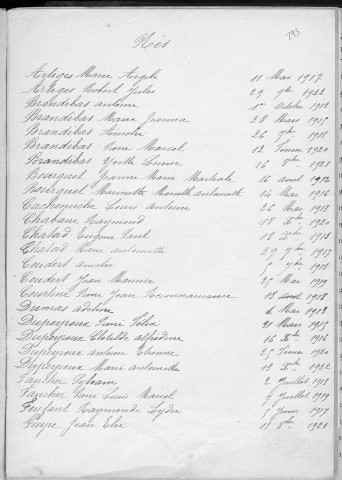 293
Nés
Artiges Marie Angèle 11 Mai 1917
Artiges Robert Jules 29 9bre 1922
Brandibas Antoine 1er Octobre 1913
Brandibas Marie Jeanne 28 Mars 1915
Brandibas Amélie 26 7bre 1918
Brandibas René Marcel 12 Février 1920
Brandibas Yvette Louise 16 8bre 1921
Bourguet Jeanne Marie 16 Août 1912
Bourguet Marinette Marcelle Antoinette 14 Mai 1916
Louis Antoine 26 Mai 1913
Chabane Raymond 18 Xbre 1920
Chatard Eugène Paul 13 Xbre 1913
Chatard Marie Antoinette 29 7bre 1919
Coudert Amélie 1918
Coudert Jean Maurice 25 Mai 1919
Courtine Pierre Jean 13 Août 1918
Dumas Adeline 6 Mai 1913
Dupeyroux René Félix 31 Mars 1915
Dupeyroux Clotilde 16 Xbre 1916
Dupeyroux Antoine Etienne 25 Février 1920
Dupeyroux Marie Antoinette 13 Xbre 1922
Faucher Sylvain 2 Juillet 1913
Faucher Pierre Louis Marcel 9 Juillet 1919
Raymonde Lydie 5 Juin 1917
Fieyre Jean Elie 11 8bre 1921